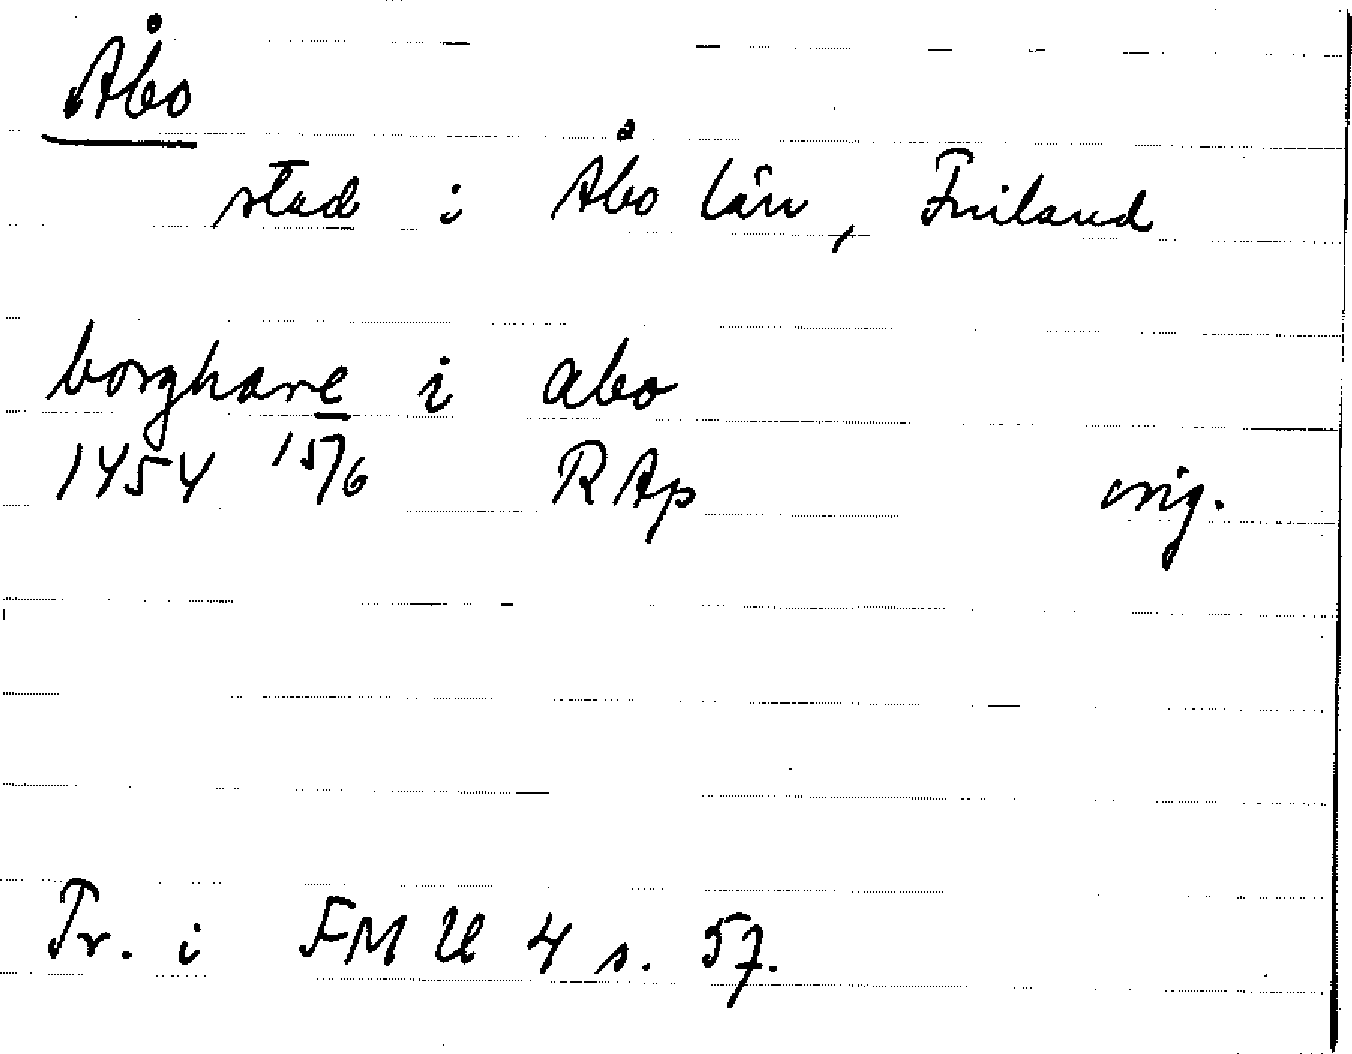 Åbo
stad i Åbo län, Finland
borghare i abo
1454 15/6 RAp orig.
Tr. i FMU 4 s. 57.